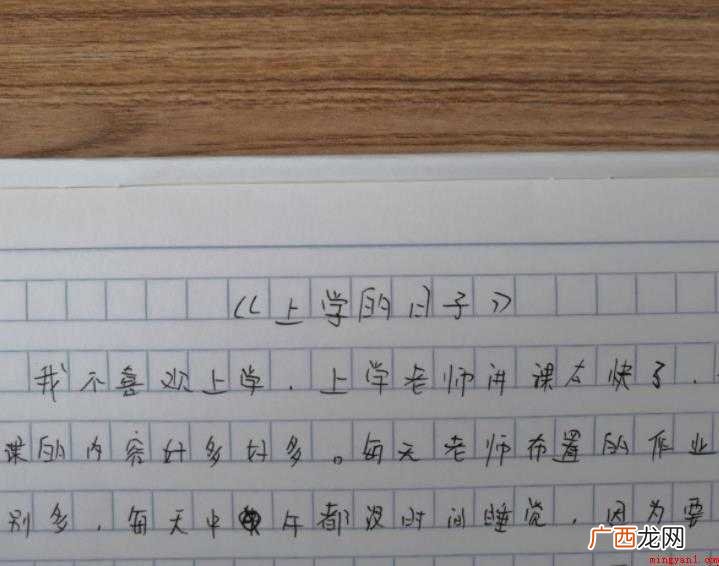 《上学的日子》
我不喜欢上学，上学老师讲课太快了，
课的内容好多好多。每天老师布置的作业
别多，每天中午都没时间睡觉，因为要
广西龙网
mingyan1.com